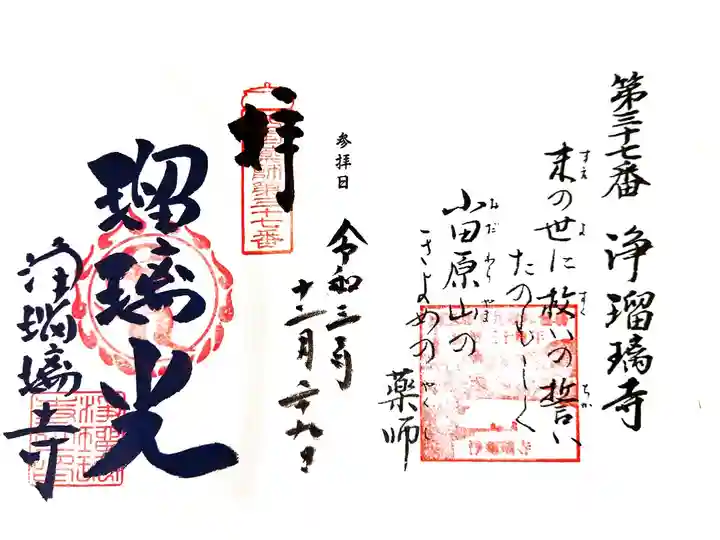 第三十七番 浄瑠璃寺
末の世に救いの誓い
すえ よ すく ちか
たのもしく
小田原山の
おだわらやま
きよめの薬師
やくし
参拝日
令和三年
十二月二十九日
拝
薬師第三十七番
瑠璃光
浄瑠璃寺